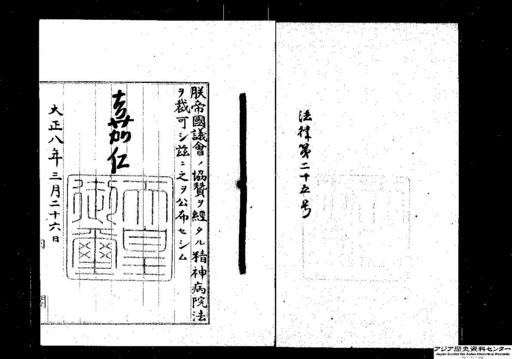 法律第二十五号
朕帝國議會ノ協贊ヲ經タル精神病院法
ヲ裁可シ茲ニ之ヲ公布セシム
嘉仁
天皇御璽
大正八年三月二十六日
アジア歴史資料センター
Japan Center for Asian Historical Records